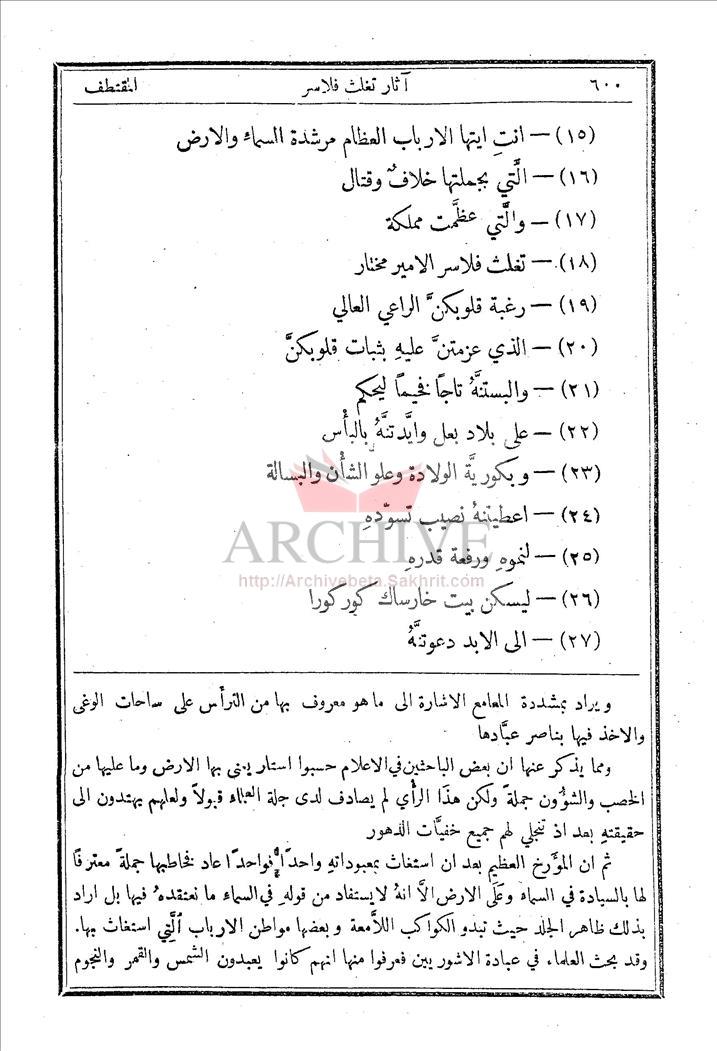 ٦٠٠ آثار تغلث فلاسر المقتطف
(١٥) — انتِ ايتها الارباب العظام مرشدة السماء والارض
(١٦) — الَّتي بجملتها خلافٌ وقتال
(١٧) — والَّتي عظَّمت مملكة
(١٨) — تغلث فلاسر الامير مختار
(١٩) — رغبة قلوبكنَّ الراعي العالي
(٢٠) — الذي عزمتنَّ عليهِ بثبات قلوبكنَّ
(٢١) — والبستنَّهُ تاجًا فخيمًا ليحكم
(٢٢) — على بلاد بعل وايَّدتنَّهُ بالبأْس
(٢٣) — وبكوريَّة الولادة وعلو الشأْن والبسالة
(٢٤) — اعطيتنهُ نصيب تسوّدهِ
(٢٥) — لنموهِ ورفعة قدرهِ
(٢٦) — ليسكن بيت خارساك كوركورا
(٢٧) — الى الابد دعوتنَّهُ
ARCHIVE
http://Archivebeta.Sakhrit.com
ويراد بمشددة المعامع الاشارة الى ما هو معروف بها من الترأُس على ساحات الوغى
والاخذ فيها بناصر عبَّادها
ومما يذكر عنها ان بعض الباحثين في الاعلام حسبوا استار يعنى بها الارض وما عليها من
الخصب والشؤُون جملةً ولكن هذا الرأْي لم يصادف لدى جلة العلماء قبولاً ولعلهم يهتدون الى
حقيقتهِ بعد اذ تنجلي لهم جميع خفيَّات الدهور
ثم ان المؤَرخ العظيم بعد ان استغاث بمعبوداتهِ واحدًا فواحدًا عاد فخاطبها جملةً معترفًا
لها بالسيادة في السماء وعَلَى الارض الاَّ انهُ لا يستفاد من قولهِ في السماء ما نعتقدهُ فيها بل اراد
بذلك ظاهر الجلد حيث تبدو الكواكب اللاَّمعة وبعضها مواطن الارباب الَّتِي استغاث بها.
وقد بحث العلماء في عبادة الاشوريين فعرفوا منها انهم كانوا يعبدون الشمس والقمر والنجوم